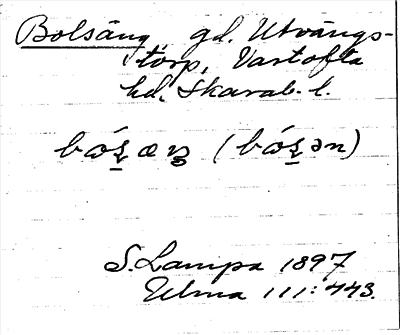 Bolsäng gd. Utvängs-
torp, Vartofta
hd. Skarab. l.
S. Lampa 1897
Ulma 111:443.